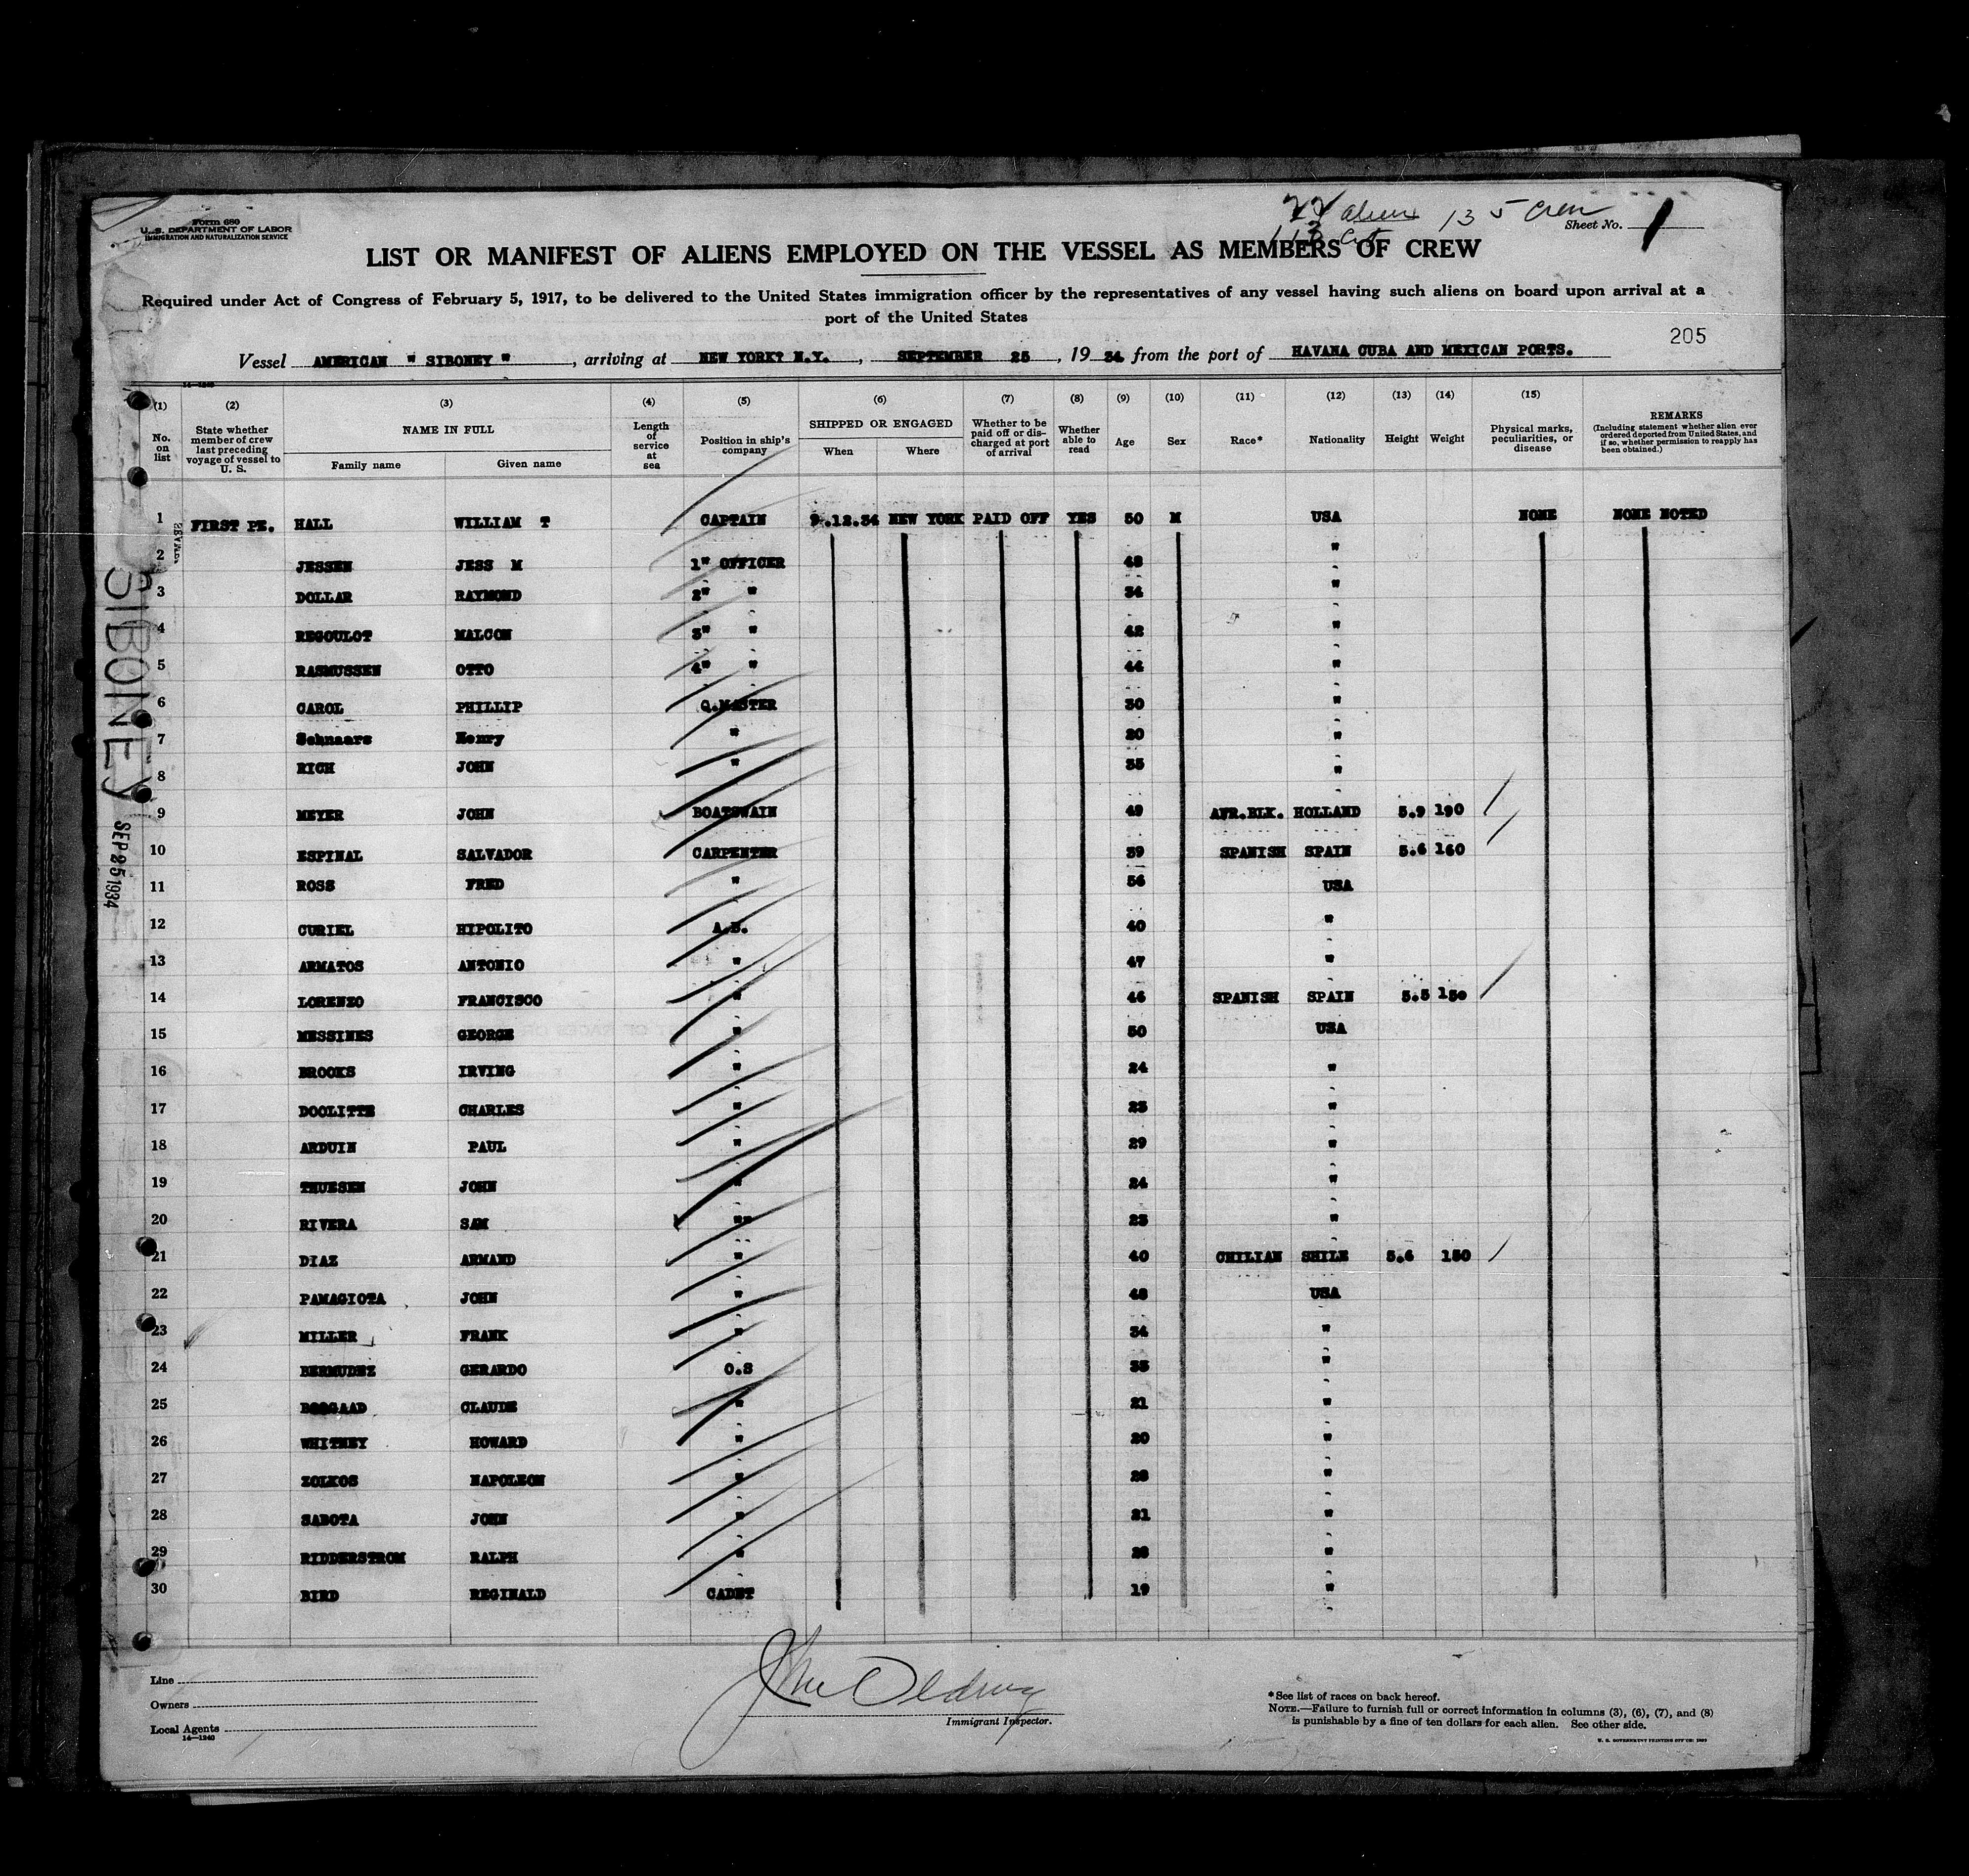 Form 680
U. S. DEPARTMENT OF LABOR
IMMIGRATION AND NATURALIZATION SERVICE
22 aliens 135 Crew
113 Cit
Sheet No. 1
LIST OR MANIFEST OF ALIENS EMPLOYED ON THE VESSEL AS MEMBERS OF CREW
Required under Act of Congress of February 5, 1917, to be delivered to the United States immigration officer by the representatives of any vessel having such aliens on board upon arrival at a
port of the United States
205
Vessel AMERICAN " SIBONEY ", arriving at NEW YORK? N.Y., SEPTEMBER 25, 19 34 from the port of HAVANA CUBA AND MEXICAN PORTS.
14—1240
(1) (2) (3) (4) (5) (6) (7) (8) (9) (10) (11) (12) (13) (14) (15)
No. on list State whether member of crew last preceding voyage of vessel to U. S. NAME IN FULL Family name Given name Length of service at sea Position in ship's company SHIPPED OR ENGAGED When Where Whether to be paid off or discharged at port of arrival Whether able to read Age Sex Race* Nationality Height Weight Physical marks, peculiarities, or disease REMARKS (Including statement whether alien ever ordered deported from United States, and if so, whether permission to reapply has been obtained.)
1 FIRST PE. HALL WILLIAM T CAPTAIN 9.12.34 NEW YORK PAID OFF YES 50 M USA NONE NONE NOTED
2 JESSEN JESS M 1" OFFICER 48 "
3 DOLLAR RAYMOND 2" " 34 "
4 REGOULOT MALCOM 3" " 42 "
5 RASMUSSEN OTTO 4" " 44 "
6 CAROL PHILLIP Q.MASTER 30 "
7 Schnaars Henry " 20 "
8 RICH JOHN " 35 "
9 MEYER JOHN BOATSWAIN 49 AFR.BLK. HOLLAND 5.9 190
10 ESPINAL SALVADOR CARPENTER 39 SPANISH SPAIN 5.6 160
11 ROSS FRED " 56 USA
12 CURIEL HIPOLITO A.B. 40 "
13 ARMATOS ANTONIO " 47 "
14 LORENZO FRANCISCO " 46 SPANISH SPAIN 5.5 150
15 MESSINES GEORGE " 50 USA
16 BROOKS IRVING " 24 "
17 DOOLITTE CHARLES " 23 "
18 ARDUIN PAUL " 29 "
19 THUESEN JOHN " 24 "
20 RIVERA SAM "" 23 "
21 DIAZ ARMAND " 40 CHILIAN SHILE 5.6 150
22 PAMAGIOTA JOHN " 48 USA
23 MILLER FRANK " 34 "
24 BERMUDEZ GERARDO O.S 35 "
25 BOOGAAD CLAUDE " 21 "
26 WHITNEY HOWARD " 20 "
27 ZOLKOS NAPOLEON " 28 "
28 SABOTA JOHN " 21 "
29 RIDDERSTROM RALPH " 28 "
30 BIRD REGINALD CADET 19 "
SIBONEY
SEP 25 1934
Line
Owners
Local Agents
14—1240
Immigrant Inspector.
*See list of races on back hereof.
NOTE.—Failure to furnish full or correct information in columns (3), (6), (7), and (8)
is punishable by a fine of ten dollars for each alien. See other side.